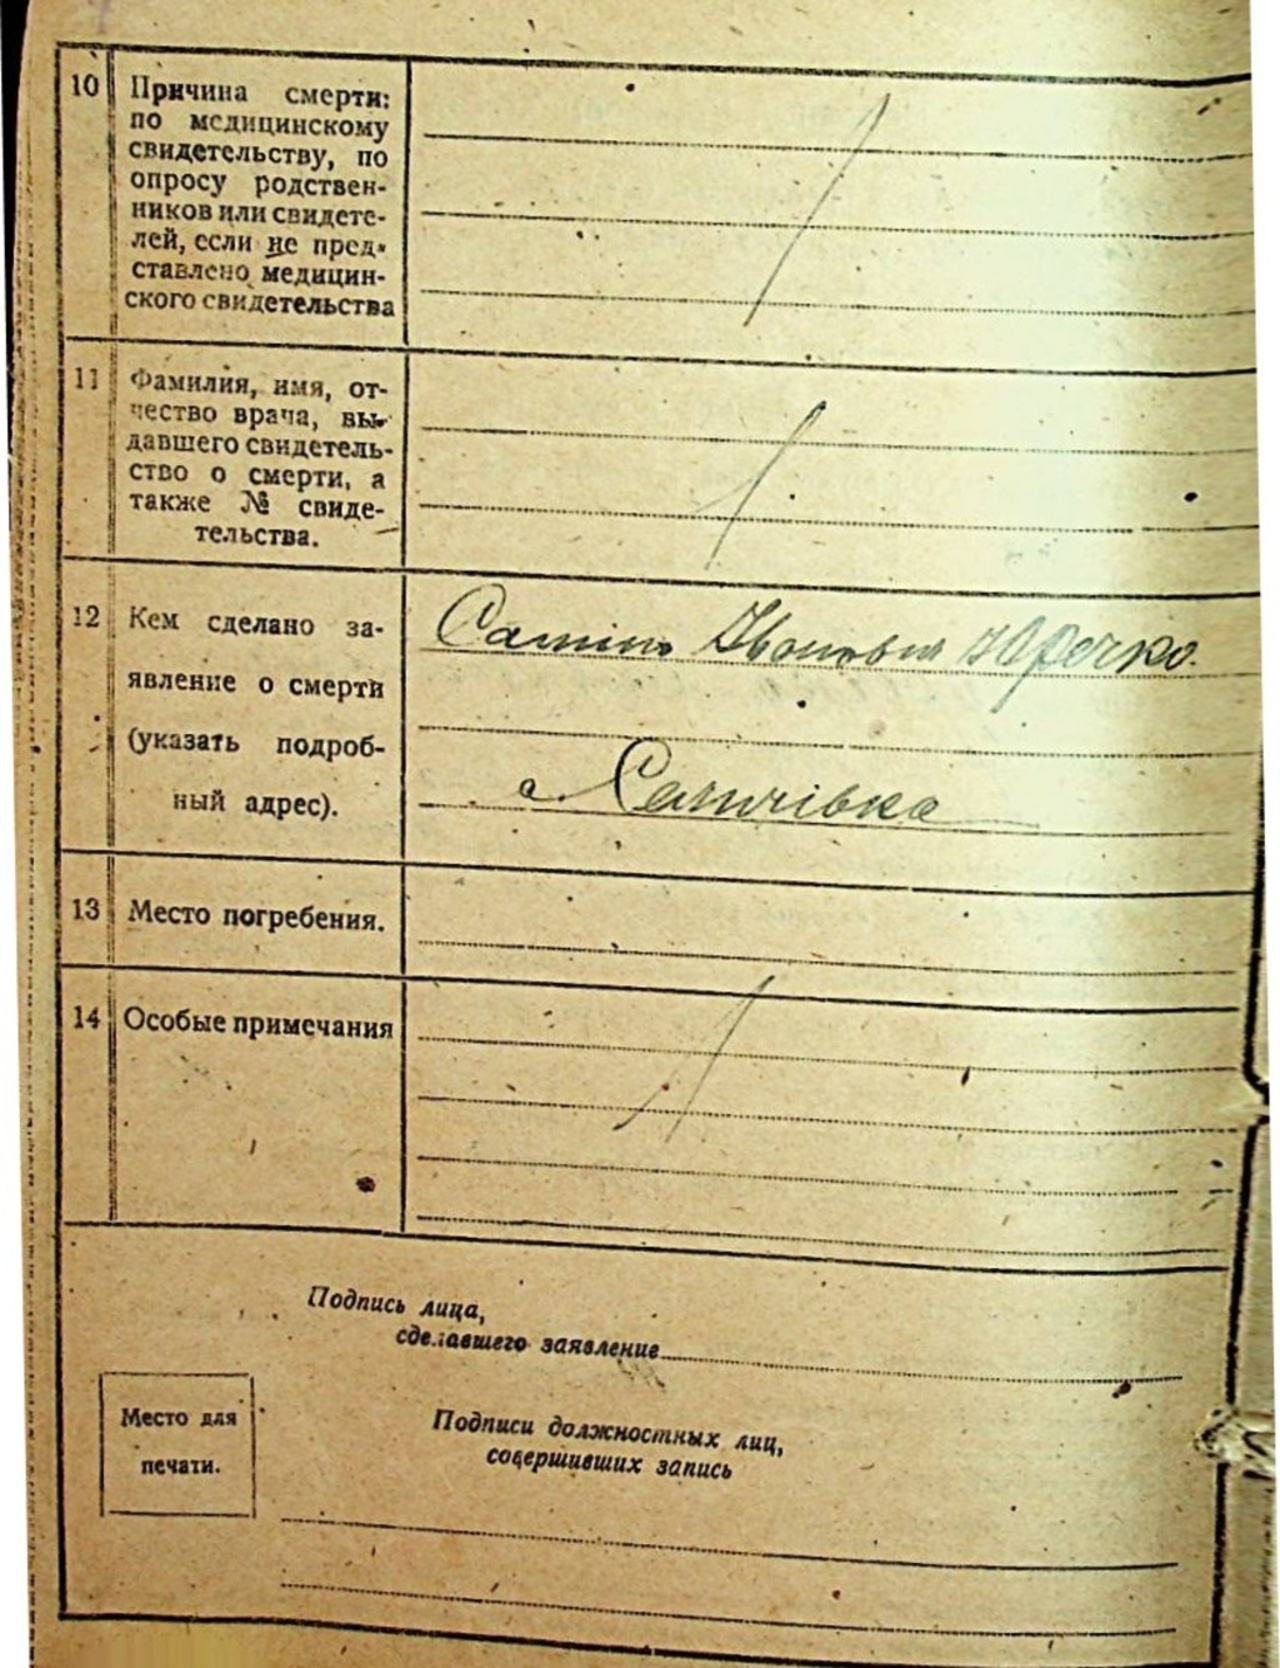 10 Причина смерти:
по медицинскому
свидетельству, по
опросу родствен-
ников или свидете-
лей, если не пред-
ставлено медицин-
ского свидетельства
11 Фамилия, имя, от-
чество врача, вы-
давшего свидетель-
ство о смерти, а
также № свиде-
тельства.
12 Кем сделано за-
явление о смерти
(указать подроб-
ный адрес).
с Саличівка
13 Место погребения.
14 Особые примечания
Подпись лица,
сделавшего заявление
Место для
печати.
Подписи должностных лиц,
совершивших запись